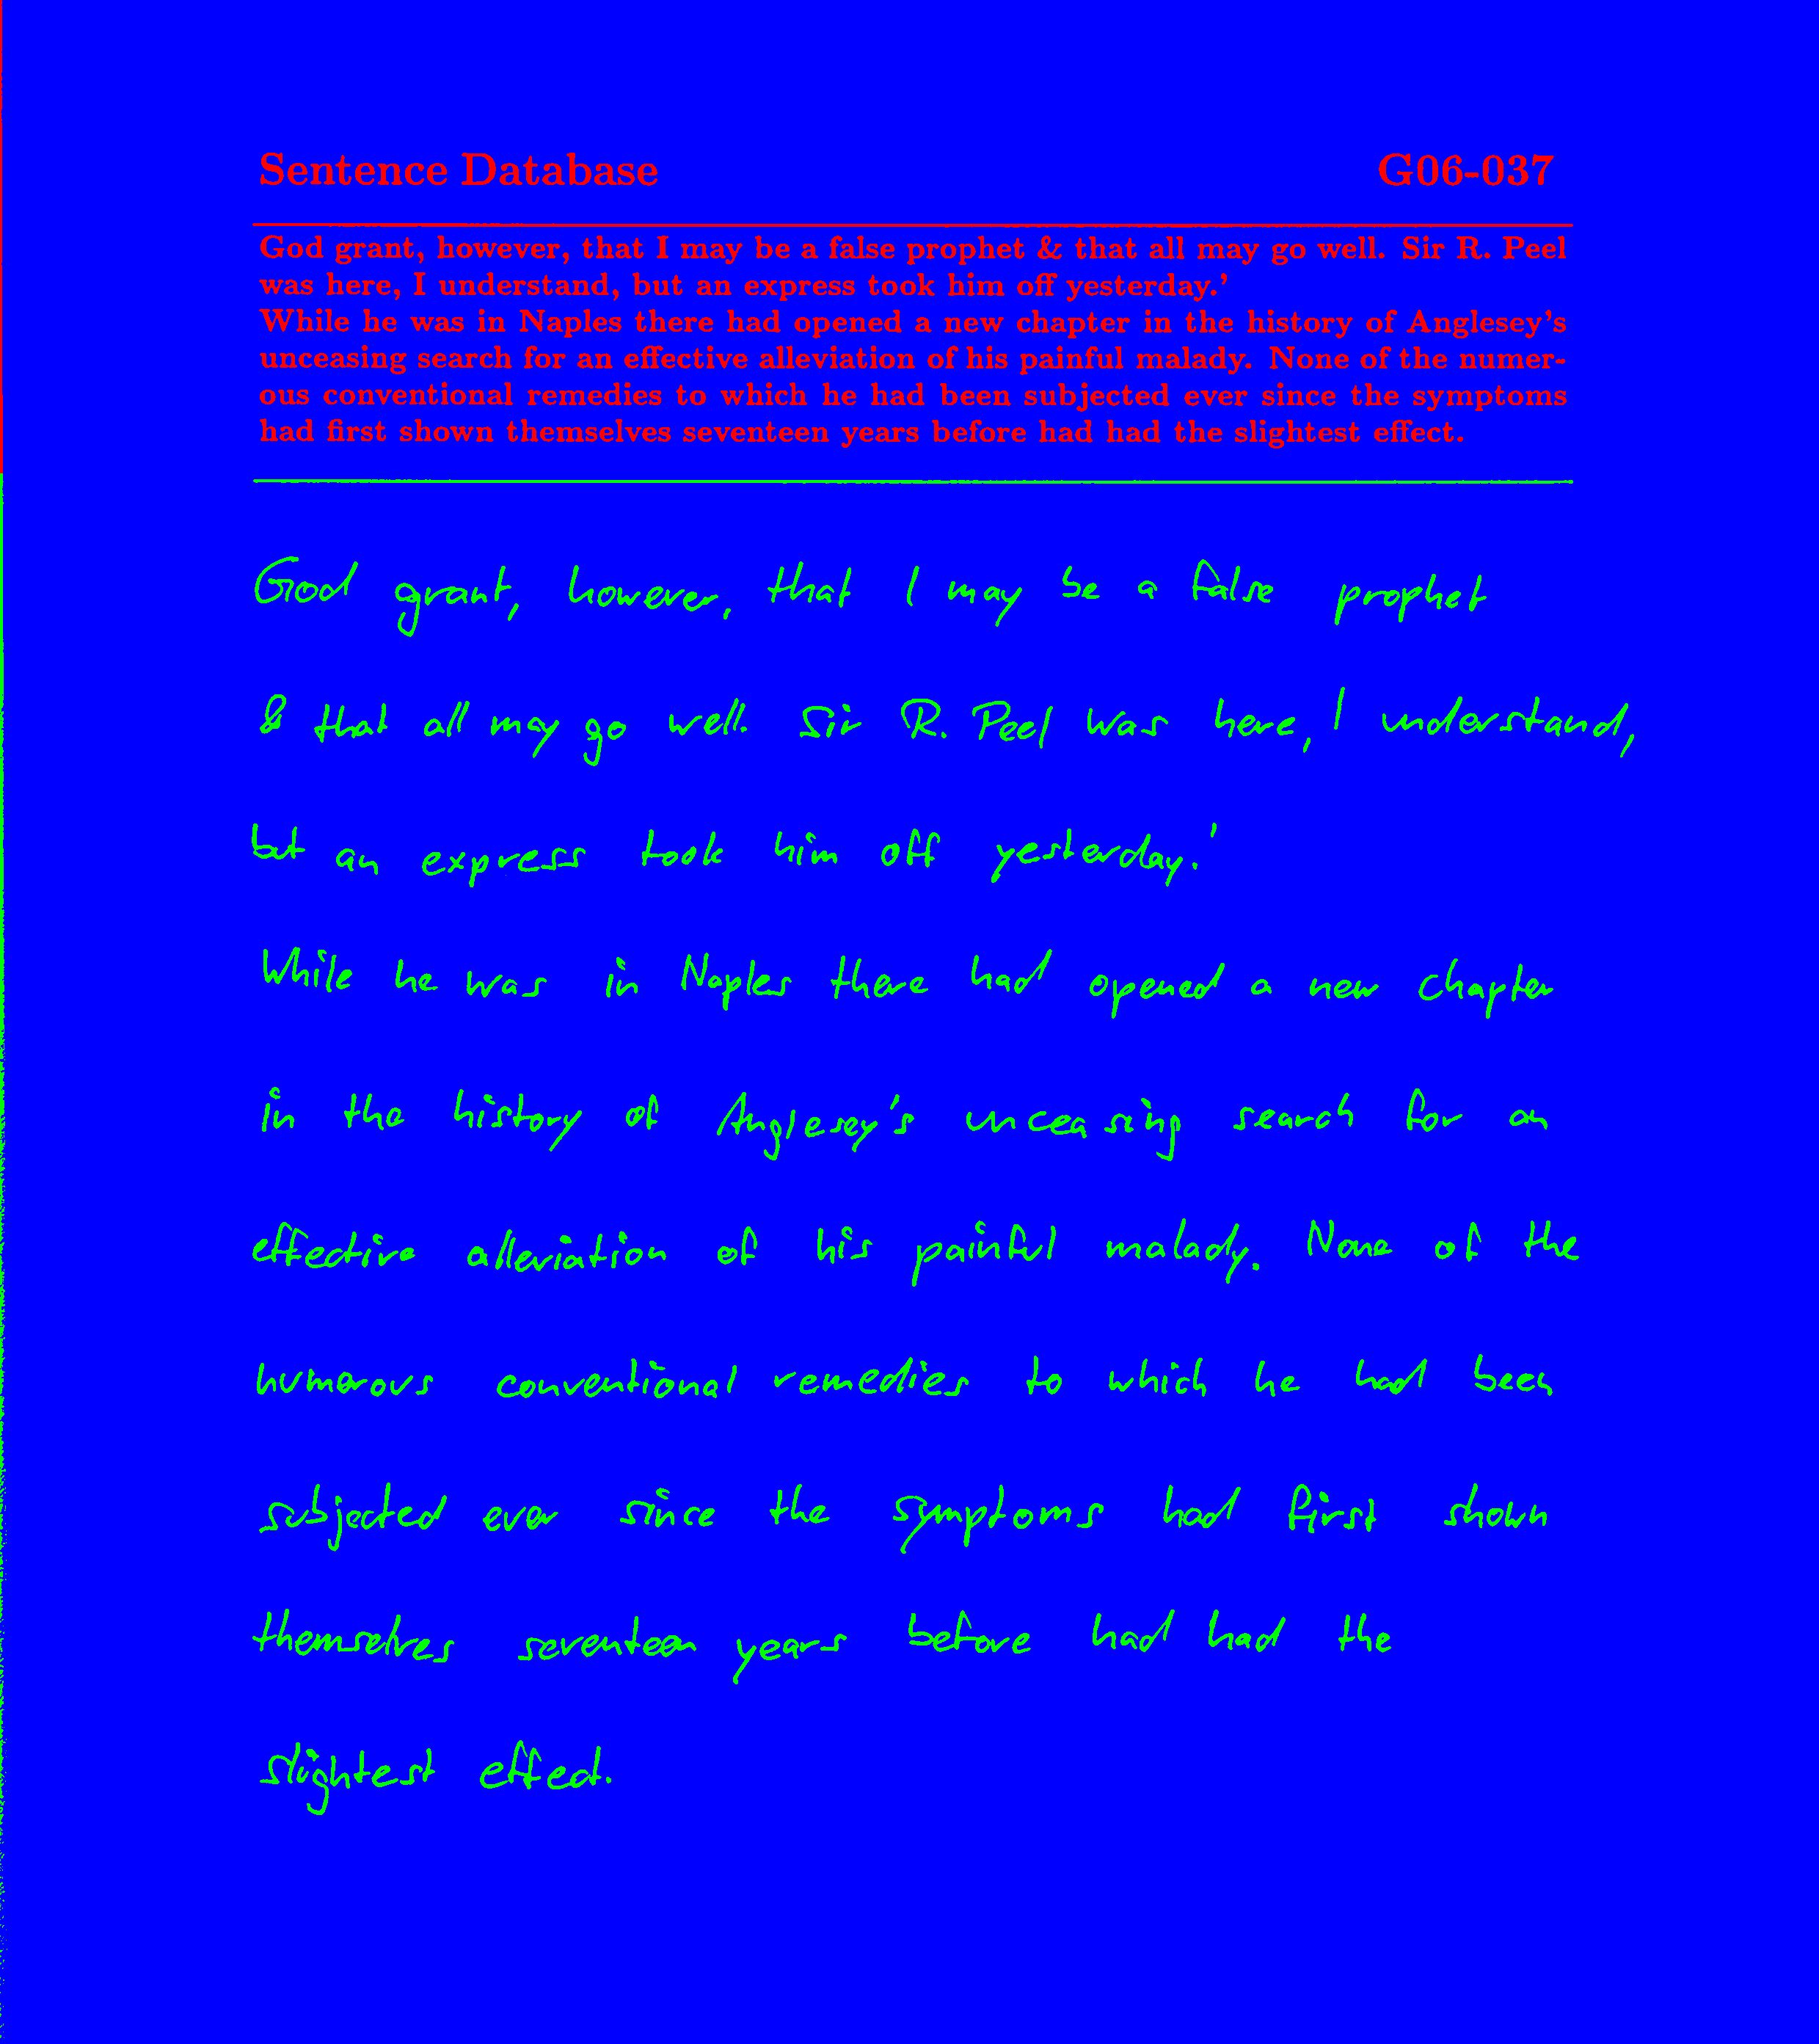 Sentence Database G06-037
God grant, however, that I may be a false prophet & that all may go well. Sir R. Peel
was here, I understand, but an express took him off yesterday.'
While he was in Naples there had opened a new chapter in the history of Anglesey's
unceasing search for an effective alleviation of his painful malady. None of the numer-
ous conventional remedies to which he had been subjected ever since the symptoms
had first shown themselves seventeen years before had had the slightest effect.
God grant, however, that I may be a false prophet
& that all may go well. Sir R. Peel was here, I understand,
but an express took him off yesterday.'
While he was in Naples there had opened a new chapter
in the history of Anglesey's unceasing search for an
effective alleviation of his painful malady. None of the
numerous conventional remedies to which he had been
subjected ever since the symptoms had first shown
themselves seventeen years before had had the
slightest effect.